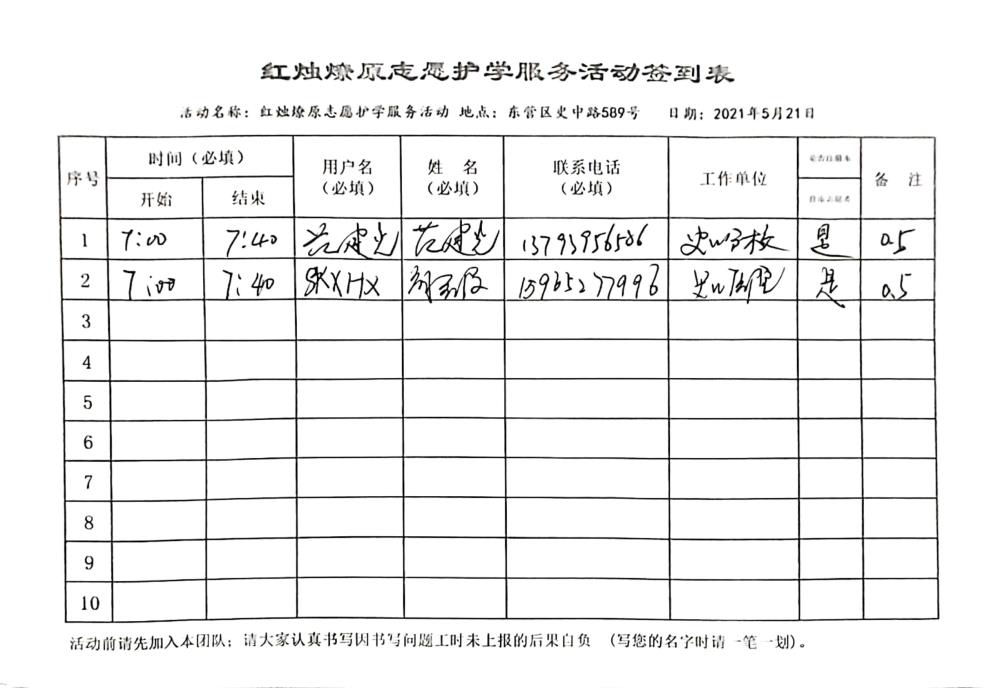 红烛燎原志愿护学服务活动签到表
活动名称：红烛燎原志愿护学服务活动 地点：东营区史中路589号 日期：2021年5月21日
序号 时间（必填） 用户名（必填） 姓 名（必填） 联系电话（必填） 工作单位 备 注
开始 结束
1 7:00 7:40 范建光 范建光 13793956586 是 0.5
2 7:00 7:40 SKXHX 15965277996 是 0.5
3
4
5
6
7
8
9
10
活动前请先加入本团队；请大家认真书写因书写问题工时未上报的后果自负 （写您的名字时请一笔一划）。